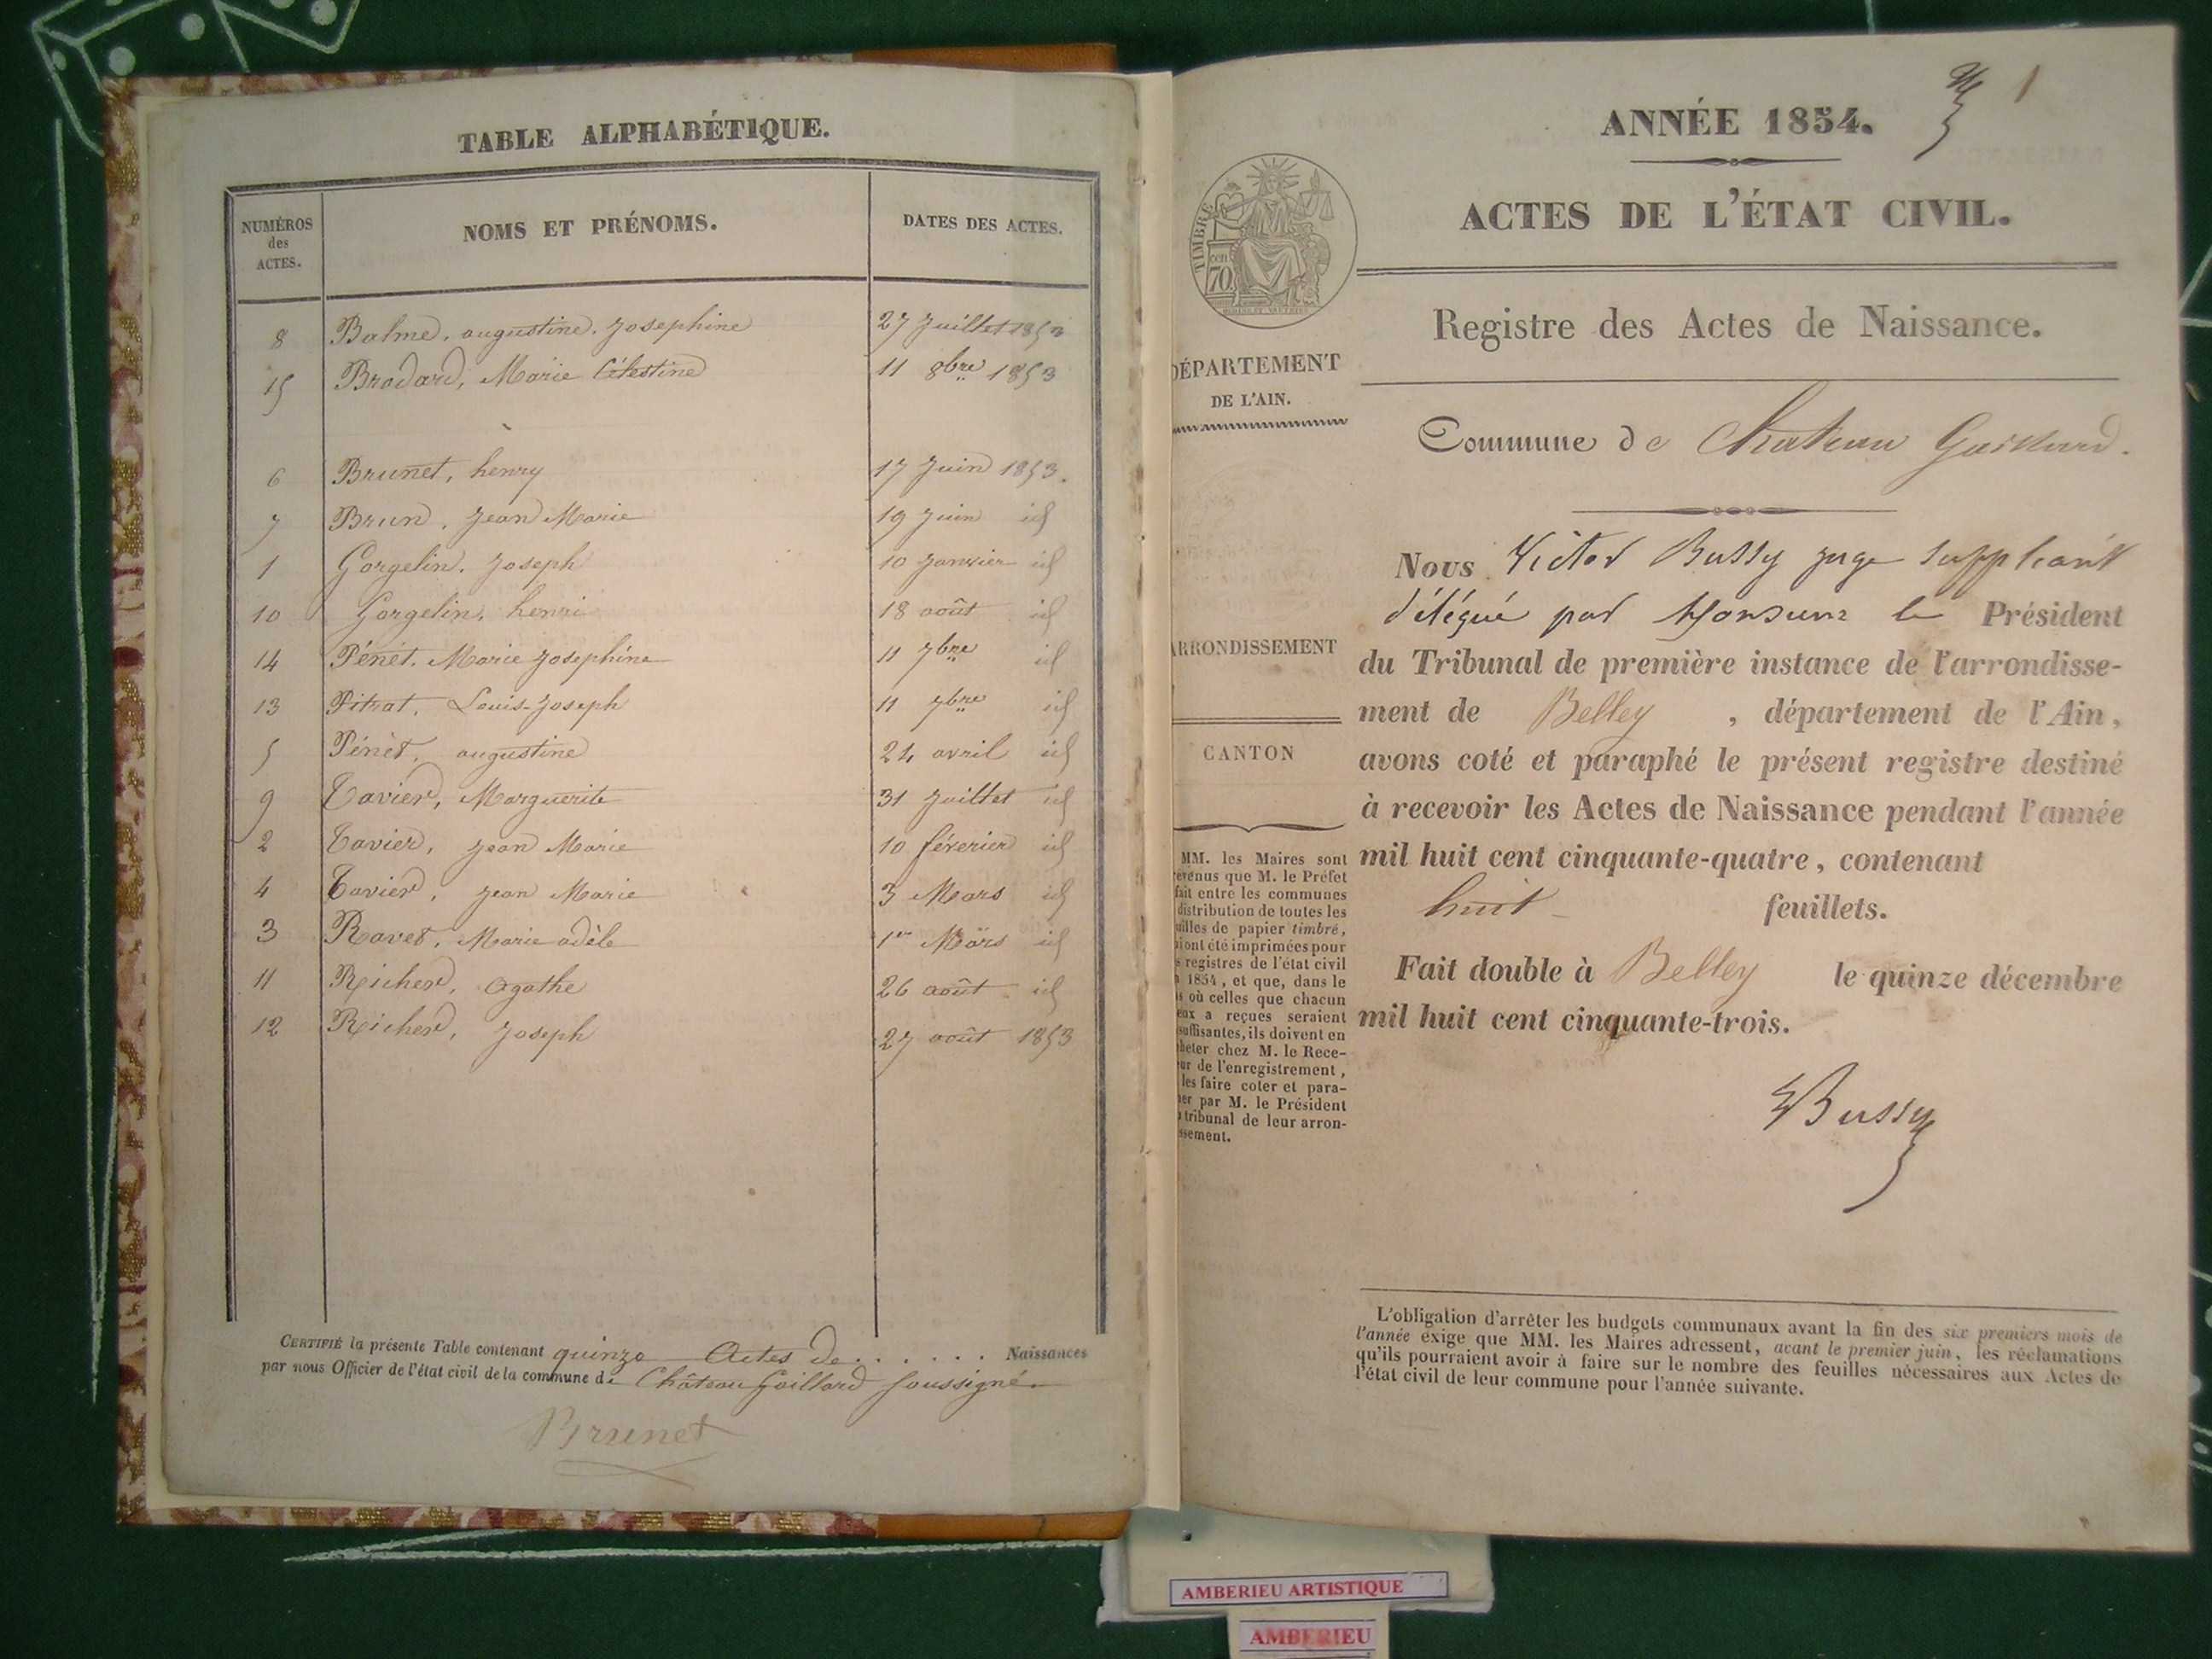 TABLE ALPHABÉTIQUE.
NUMÉROS des ACTES. NOMS ET PRÉNOMS. DATES DES ACTES.
8 Balme, augustine. Josephine 27 Juillet 1853
15 Bradard, Marie Célestine 11 8bre 1853
6 Brunet, henry 17 Juin 1853.
7 Brun, Jean Marie 19 Juin id
1 Gorgelin, Joseph 10 Janvier id
10 Gorgelin, henri 18 août id
14 Pénet, Marie Josephine 11 7bre id
13 Pitrat, Louis-Joseph 11 7bre id
5 Pénet, augustine 24 avril id
9 Tavier, Marguerite 31 Juillet id
2 Tavier, Jean Marie 10 féverier id
4 Tavier, Jean Marie 3 Mars id
3 Ravet, Marie adèle 1er Mars id
11 Richerd, agathe 26 août id
12 Richerd, Joseph 27 août 1853
CERTIFIÉ la présente Table contenant quinze Actes de . . . . . . Naissances
par nous Officier de l'état civil de la commune de Château Gaillard soussigné
Brunet
1
ANNÉE 1854.
ACTES DE L'ÉTAT CIVIL.
TIMBRE
70
Registre des Actes de Naissance.
DÉPARTEMENT
DE L'AIN.
Commune de Chateau Gaillard.
Nous Victor Bussy juge suppléant
délégué par Monsieur le Président
ARRONDISSEMENT
du Tribunal de première instance de l'arrondisse-
ment de Belley, département de l'Ain,
CANTON
avons coté et paraphé le présent registre destiné
à recevoir les Actes de Naissance pendant l'année
mil huit cent cinquante-quatre, contenant
huit feuillets.
Fait double à Belley le quinze décembre
mil huit cent cinquante-trois.
MM. les Maires sont
évenus que M. le Préfet
fait entre les communes
distribution de toutes les
uilles de papier timbré,
i ont été imprimées pour
s registres de l'état civil
1854, et que, dans le
s où celles que chacun
eux a reçues seraient
suffisantes, ils doivent en
heter chez M. le Rece-
ur de l'enregistrement,
les faire coter et para-
her par M. le Président
tribunal de leur arron-
ssement.
Bussy
L'obligation d'arrêter les budgets communaux avant la fin des six premiers mois de
l'année exige que MM. les Maires adressent, avant le premier juin, les réclamations
qu'ils pourraient avoir à faire sur le nombre des feuilles nécessaires aux Actes de
l'état civil de leur commune pour l'année suivante.
AMBERIEU ARTISTIQUE
AMBERIEU